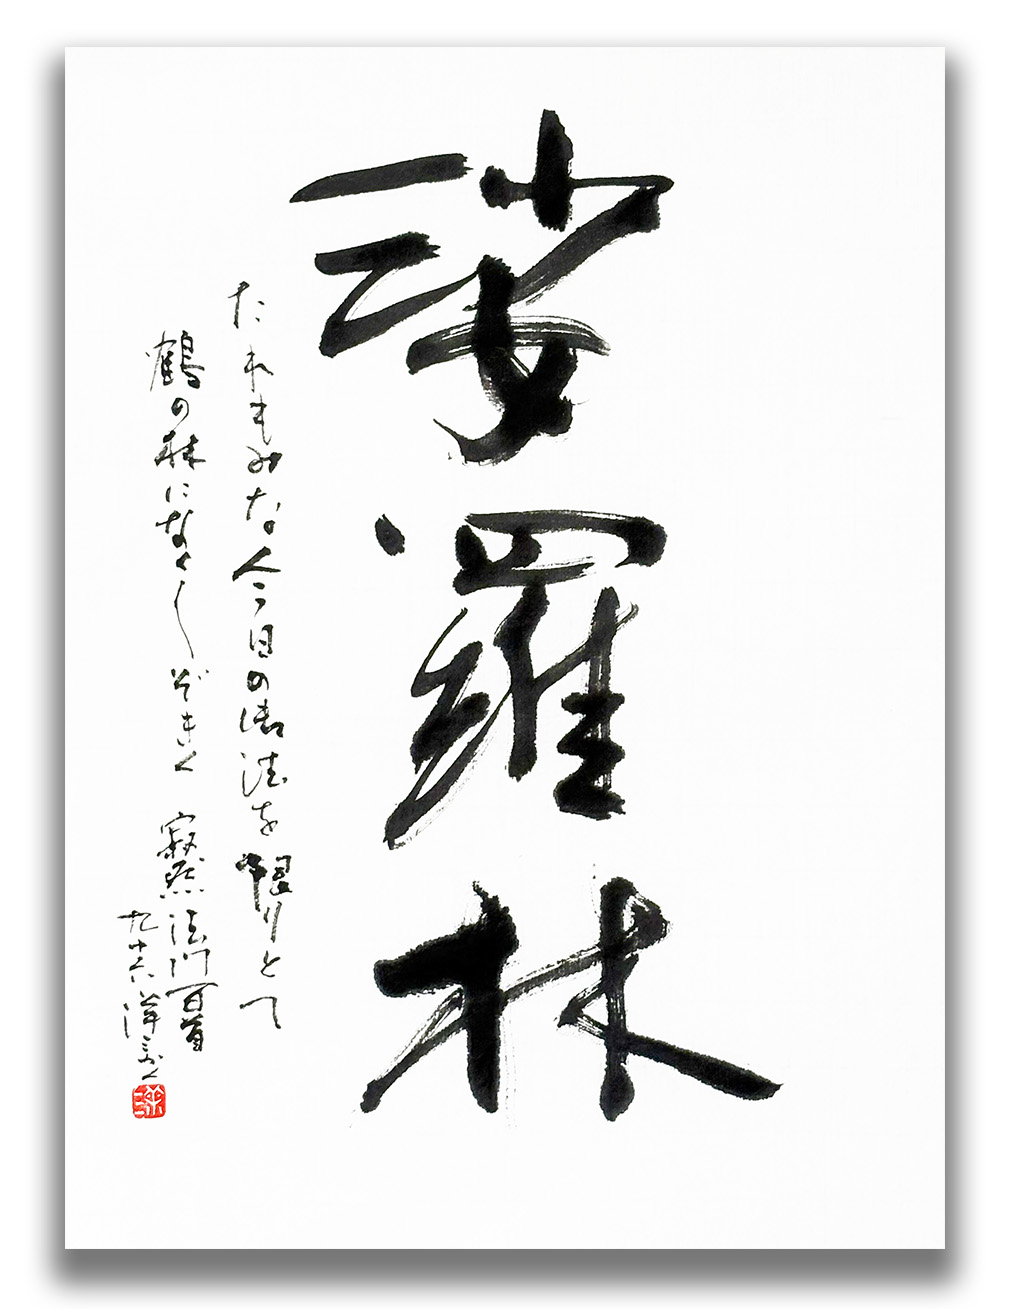 娑羅林
たれもみな今日の御法を限りとて
鶴の林になく〱ぞきく 寂然法門百首
九十六